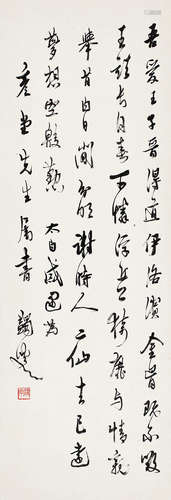 吾愛王子晉得道伊洛濱金骨既不毀
玉顏長自春可憐浮丘公猗靡與情親
舉首白日間分明謝時人二仙去已遠
夢想空殷勤 太白感遇為
堂先生屬書